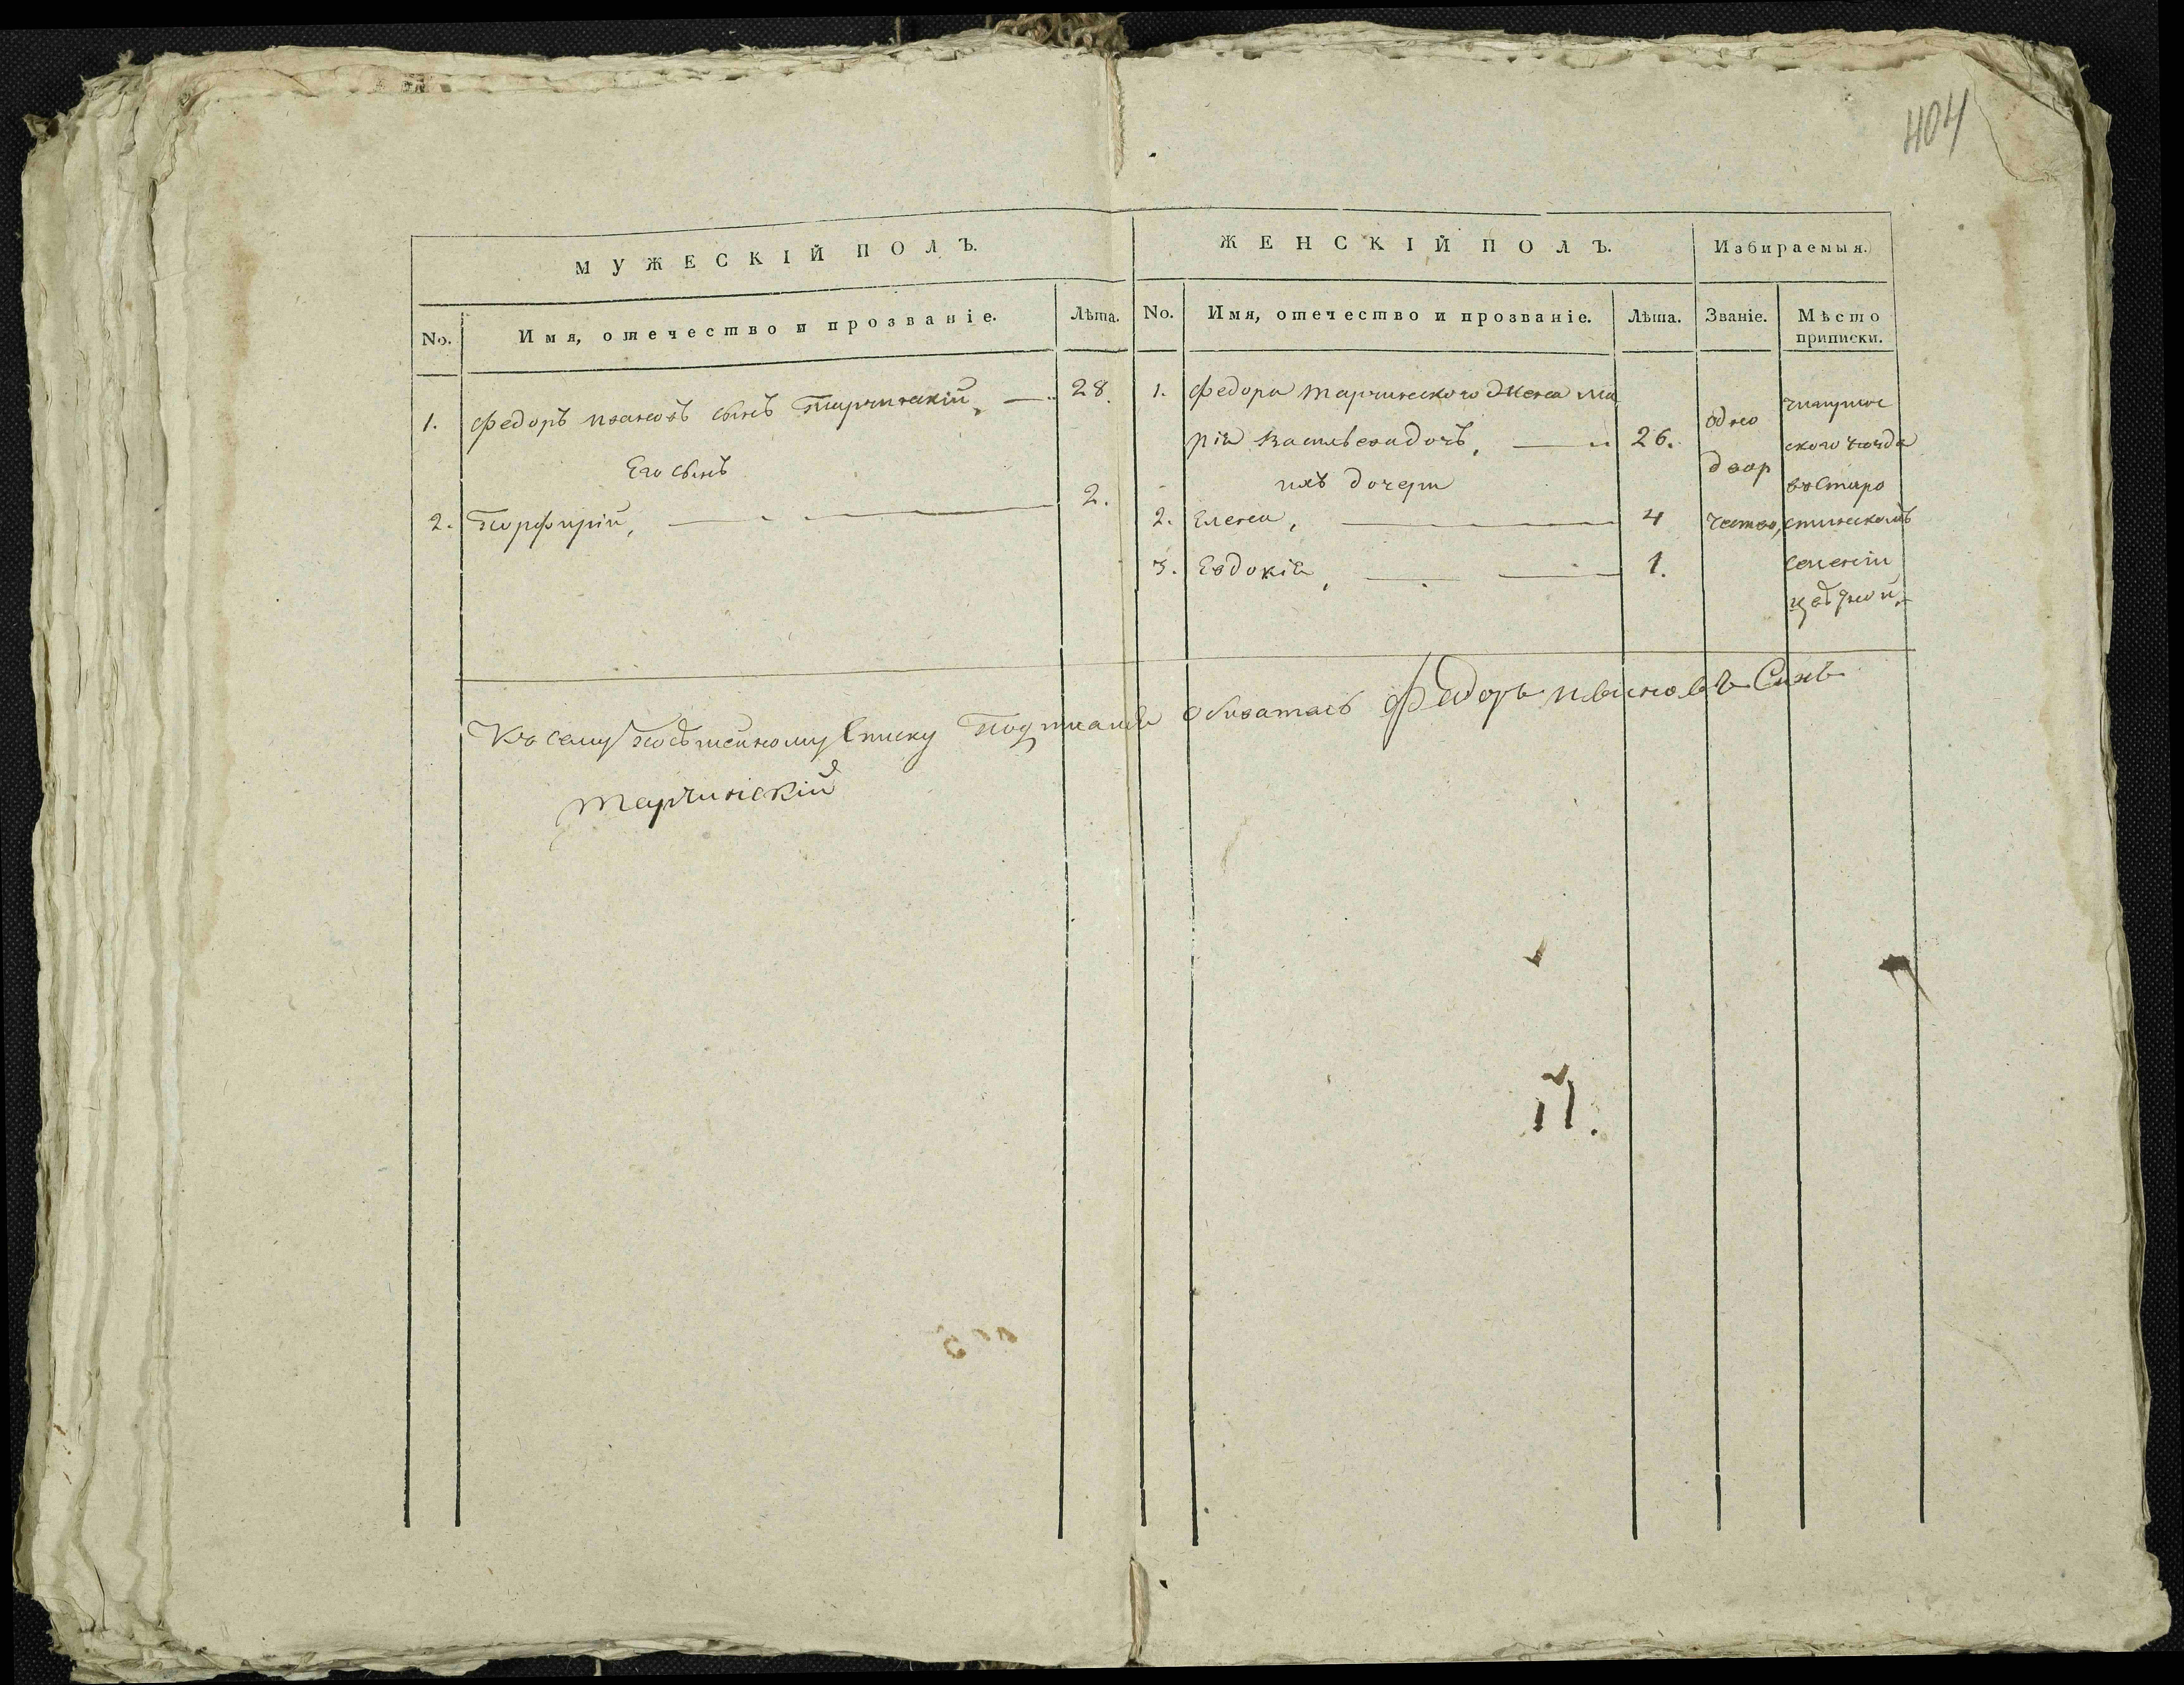 404
МУЖЕСКІЙ ПОЛЪ.
ЖЕНСКІЙ ПОЛЪ.
Избираемыя.
No.
Имя, отечество и прозваніе.
Лѣта.
No.
Имя, отечество и прозваніе.
Лѣта.
Званіе.
Мѣсто
приписки.
1. Федоръ ивановъ сынъ Тарчинскій, 28.
Его сынъ
2. Порфирій, 2.
1. Федора Тарчинского Жена Ма
рія Васильевадочъ, 26.
ихъ дочери
2. Елена, 4
3. Евдокія, 1.
одно
двор
чество,
ского уезда
селеніи
Къ сему Списку Подписался Федоръ ивановъ Синъ
тарчинскій